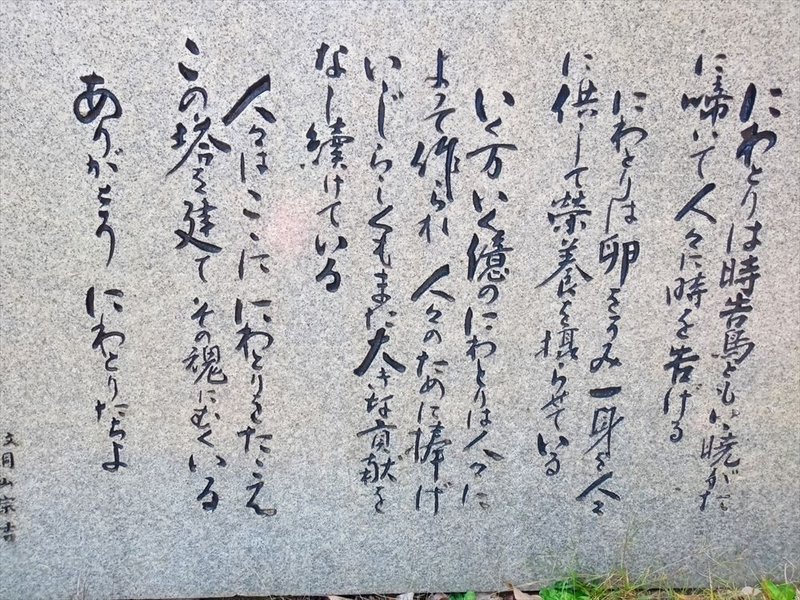 にわとりは時告鳥ともいい暁がた
に啼いて人々に時を告げる
にわとりは卵をうみ一身を人々
に供して榮養を摂らせている
いく万いく億のにわとりは人々に
よって作られ 人々のために捧げ
いじらしくもまた大きな貢献を
なし續けている
人々はここに にわとりをたたえ
この塔を建て その魂にむくいる
ありがとう にわとりたちよ